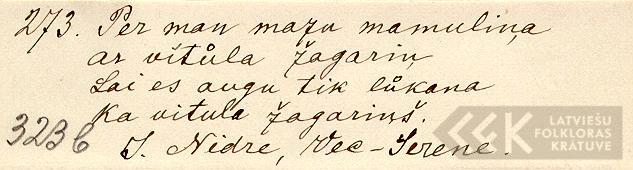 273. Per man mazu mamuliņa
ar vītůla žagariņ
Lai es augu tik lůkana
Ka vitula žagariņš.
3236 J. Nidre, Vec-Serene.
LATVIEŠU
FOLKLORAS
KRĀTUVE